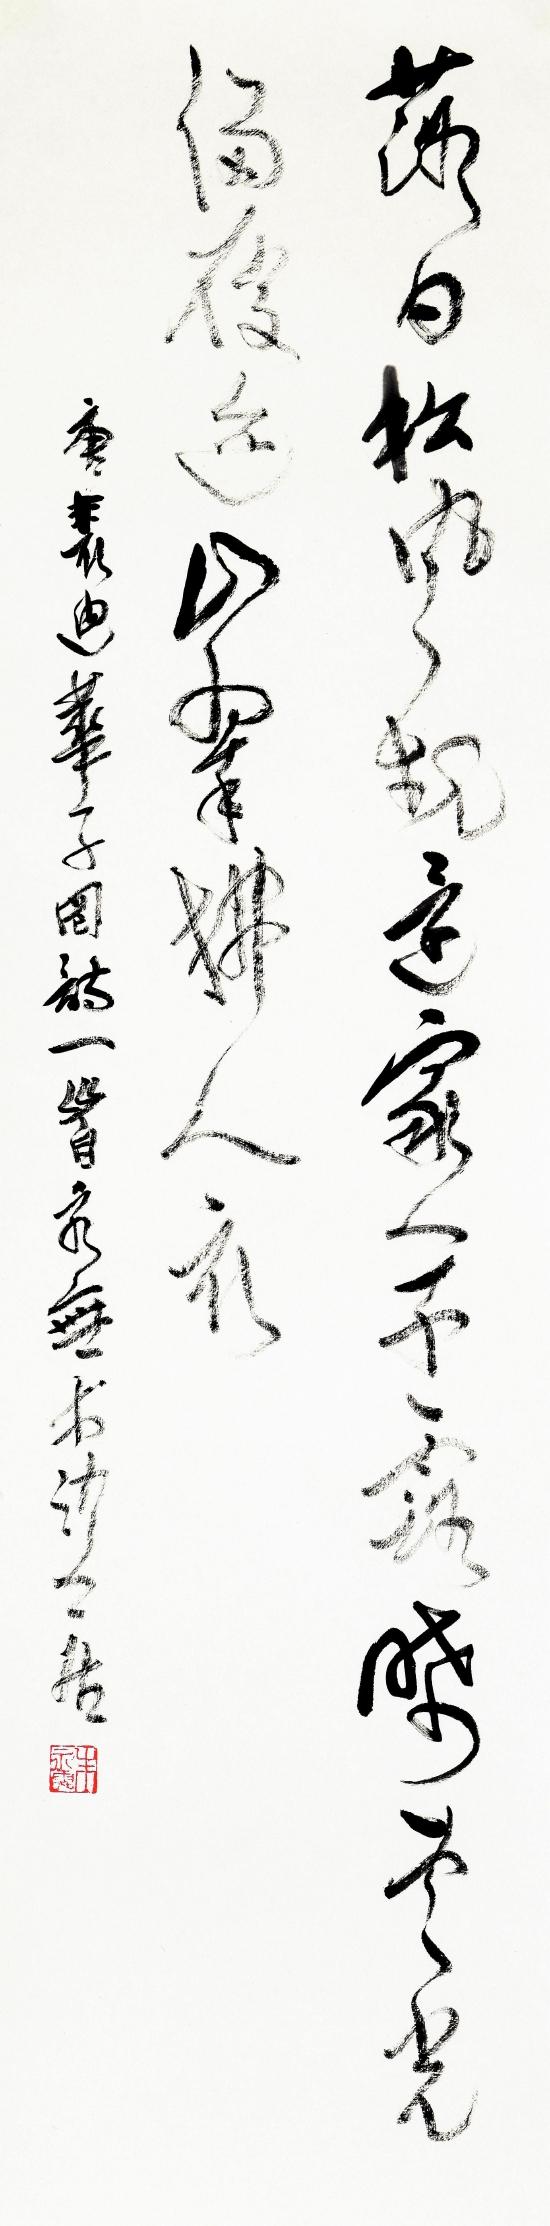 落日松風起還家草露晞雲光
侵履迹山翠拂人衣
唐裴迪華子岡詩一首永